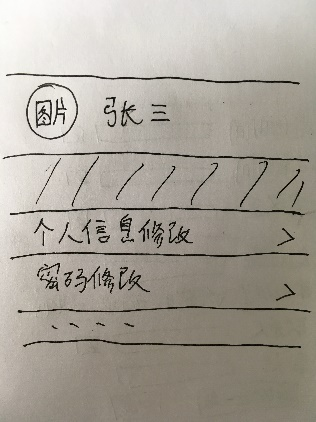 图片 张三
个人信息修改 >
密码修改 >
....